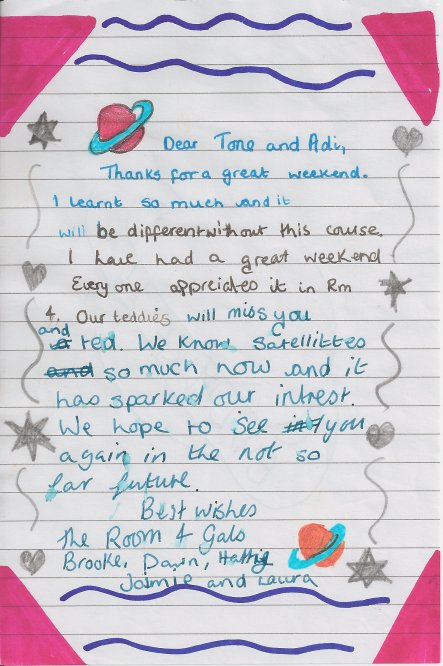 Dear Tone and Adi,
Thanks for a great weekend.
I learnt so much and it
will be different without this course.
I have had a great weekend
Every one appreciates it in Rm
4. Our teddies will miss you
and red. We know Satellittes
and so much now and it
has sparked our intrest.
We hope to see you
again in the not so
far future.
Best wishes
The Room 4 Gals
Brooke, Dawn, Hattie
Jaimie and Laura